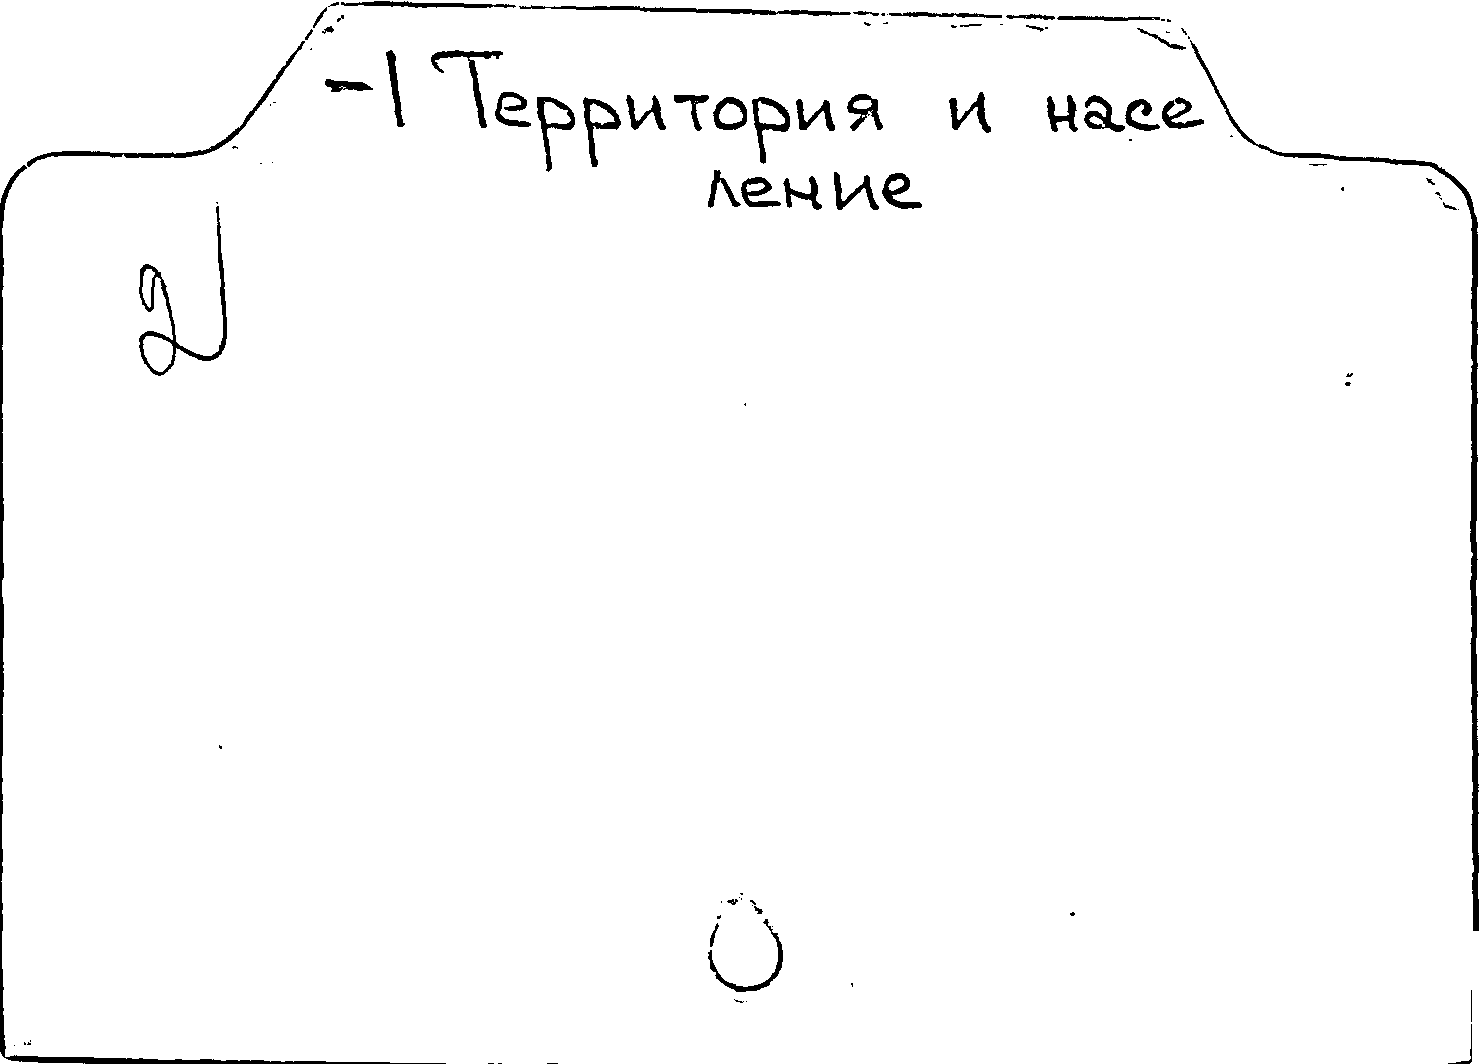 -1 Территория и насе
ление
2